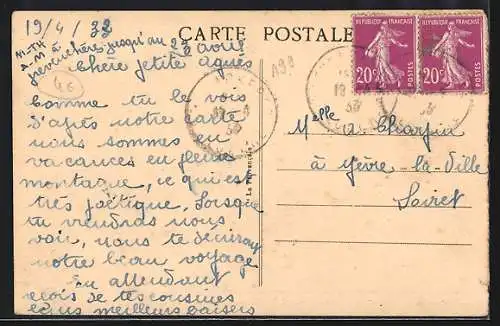 19/4/33
CARTE POSTALE
M-TH
A-M à
jusqu'au 23 avril
Chère petite Agnès
46
Comme tu le vois
d'après notre carte
nous sommes en
vacances en pleine
montagne, ce qui est
très poétique. Lorsque
tu viendras nous
voir, nous te
notre beau voyage
En attendant
reçois de tes cousines
leurs meilleurs baisers
La Provençale
199
REPUBLIQUE FRANÇAISE
20c
POSTES
REPUBLIQUE FRANÇAISE
20c
POSTES
Melle A. Charpin
à Yèvre-la-Ville
Loiret